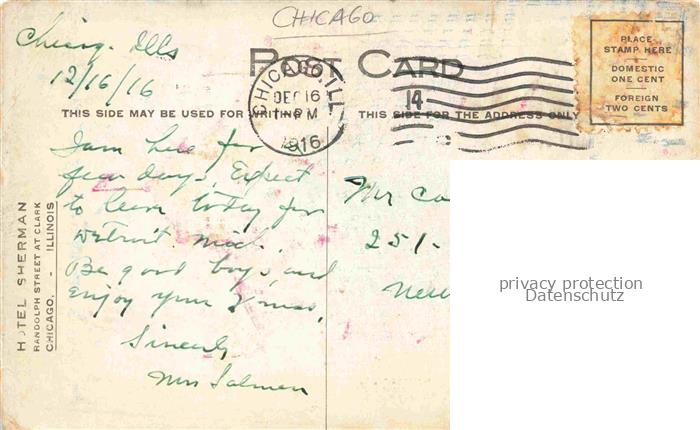 CHICAGO
Chicag. Ills
12/16/16
POST CARD
CHICAGO, ILL.
DEC 16
1916
14
PLACE
STAMP HERE
DOMESTIC
ONE CENT
FOREIGN
TWO CENTS
THIS SIDE MAY BE USED FOR WRITING
THIS SIDE FOR THE ADDRESS ONLY
I am here for
few days, Expect
to leave today for
Detroit. Mich.
Be good boys, and
enjoy your Xmas,
Sincerely
HOTEL SHERMAN
RANDOLPH STREET AT CLARK
CHICAGO, - ILLINOIS
Mr Ca
251-
New
privacy protection
Datenschutz